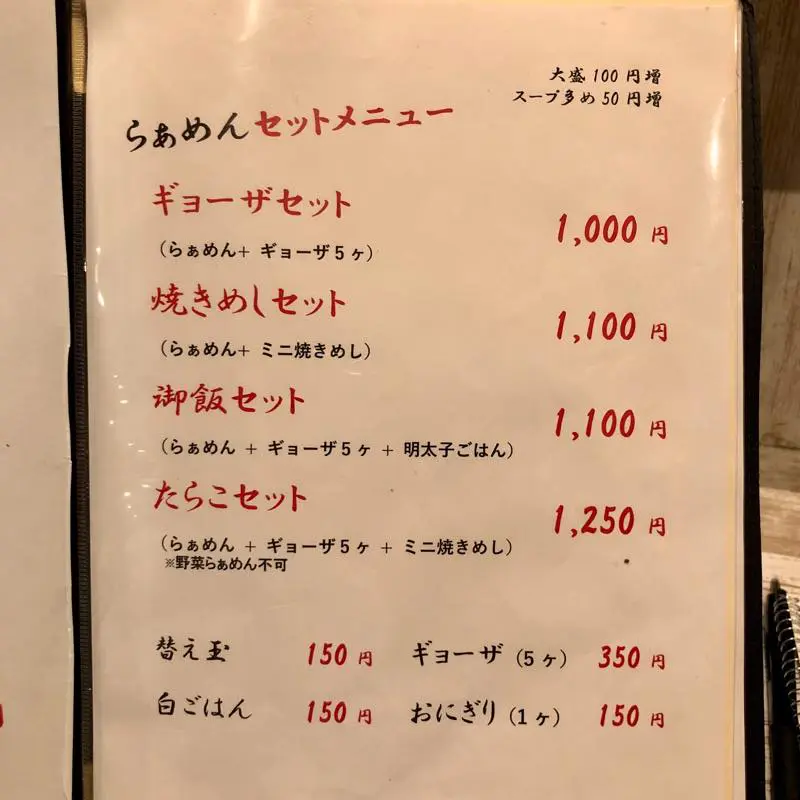 大盛100円増
スープ多め50円増
らぁめんセットメニュー
ギョーザセット
1,000円
（らぁめん＋ ギョーザ5ヶ）
焼きめしセット
1,100円
（らぁめん＋ ミニ焼きめし）
御飯セット
1,100円
（らぁめん ＋ ギョーザ5ヶ ＋ 明太子ごはん）
たらこセット
1,250円
（らぁめん ＋ ギョーザ5ヶ ＋ ミニ焼きめし）
※野菜らぁめん不可
替え玉 150円 ギョーザ（5ヶ） 350円
白ごはん 150円 おにぎり（1ヶ） 150円